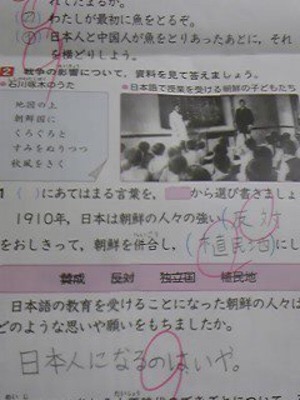 れてたまるか。
(ウ) わたしが最初に魚をとるぞ。
日本人と中国人が魚をとりあったあとに、それ
を横どりしよう。
2 戦争の影響について、資料を見て答えましょう。
●石川啄木のうた
●日本語で授業を受ける朝鮮の子どもたち
地図の上
朝鮮国に
くろぐろと
すみをぬりつつ
秋風をきく
1 ( )にあてはまる言葉を、 から選び書きましょ
1910年、日本は朝鮮の人々の強い(反対
をおしきって、朝鮮を併合し、(植民地)にし
賛成 反対 独立国 植民地
日本語の教育を受けることになった朝鮮の人々は
どのような思いや願いをもちましたか。
日本人になるのはいや。